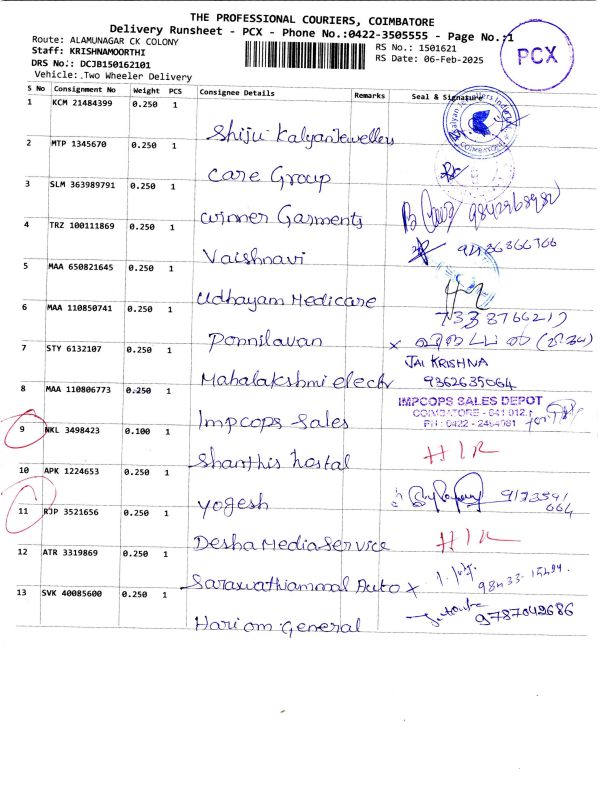 THE PROFESSIONAL COURIERS, COIMBATORE
Delivery Runsheet - PCX - Phone No.:0422-3505555 - Page No.:1
Route: ALAMUNAGAR CK COLONY
RS No.: 1501621
Staff: KRISHNAMOORTHI
RS Date: 06-Feb-2025
DRS No.: DCJB150162101
Vehicle: Two Wheeler Delivery
PCX
S No Consignment No Weight PCS Consignee Details Remarks Seal & Signature
1 KCM 21484399 0.250 1
Shiju Kalyan Jewellers
2 MTP 1345670 0.250 1
Care Group
3 SLM 363989791 0.250 1
Winner Garments
4 TRZ 100111869 0.250 1
Vaishnavi
5 MAA 650821645 0.250 1
Udhayam Medicare
6 MAA 110850741 0.250 1
Ponnilavan
7 STY 6132107 0.250 1
JAI KRISHNA
Mahalakshmi electr 9362635064
8 MAA 110806773 0.250 1
IMPCOPS SALES DEPOT
COIMBATORE - 641 012.
PH : 0422 -
Impcops Sales
9 NKL 3498423 0.100 1
Shanthis hostal
10 APK 1224653 0.250 1
Yogesh
11 RJP 3521656 0.250 1
Desha Media Service
12 ATR 3319869 0.250 1
Saraswathiammal Auto x
13 SVK 40085600 0.250 1
9787049686
Hariom General